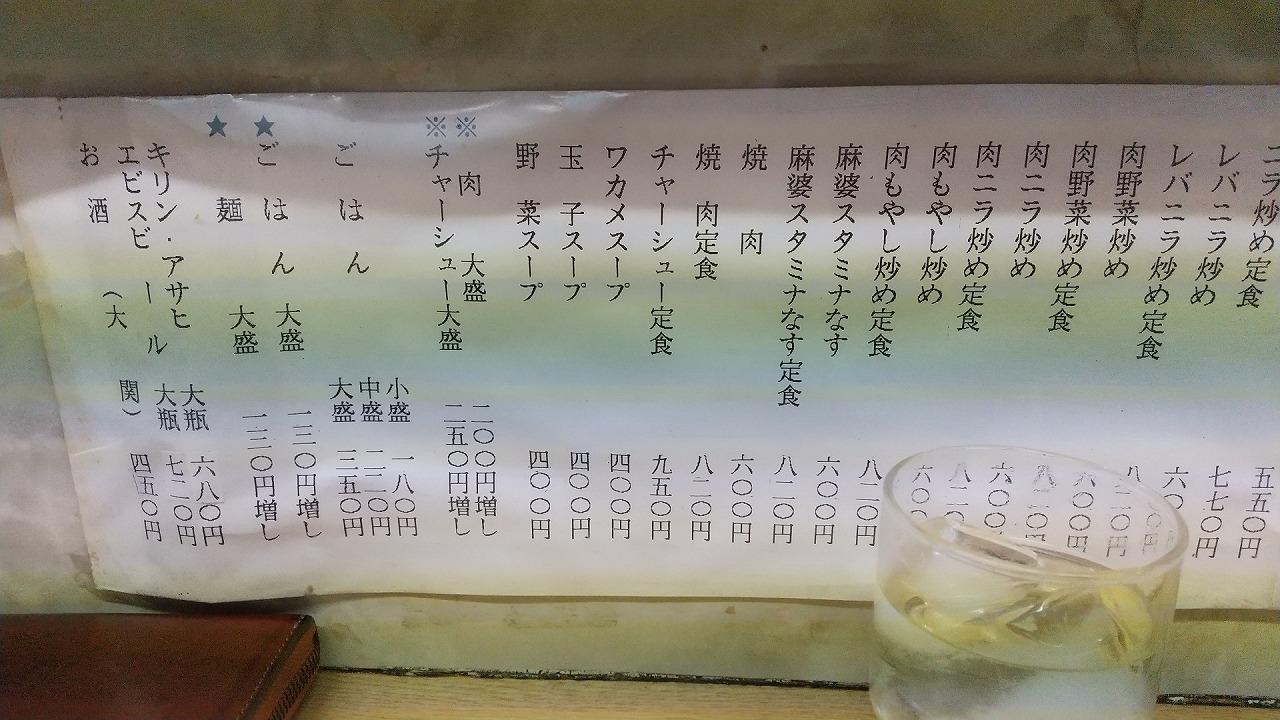 五五〇円
ニラ炒め定食 七七〇円
レバニラ炒め 六〇〇円
レバニラ炒め定食 八二〇円
肉野菜炒め 六〇〇円
肉野菜炒め定食 八二〇円
肉ニラ炒め 六〇〇円
肉ニラ炒め定食 八二〇円
肉もやし炒め 六〇〇
肉もやし炒め定食 八二〇円
麻婆スタミナなす 六〇〇円
麻婆スタミナなす定食 八二〇円
焼肉 六〇〇円
焼肉定食 八二〇円
チャーシュー定食 九五〇円
ワカメスープ 四〇〇円
玉子スープ 四〇〇円
野菜スープ 四〇〇円
※肉 大盛 二〇〇円増し
※チャーシュー大盛 二五〇円増し
ごはん 小盛 一八〇円
中盛 二二〇円
大盛 三五〇円
★ごはん 大盛 一三〇円増し
★麺 大盛 一三〇円増し
キリン・アサヒ 大瓶 六八〇円
エビスビール 大瓶 七二〇円
お酒 (大関) 四五〇円